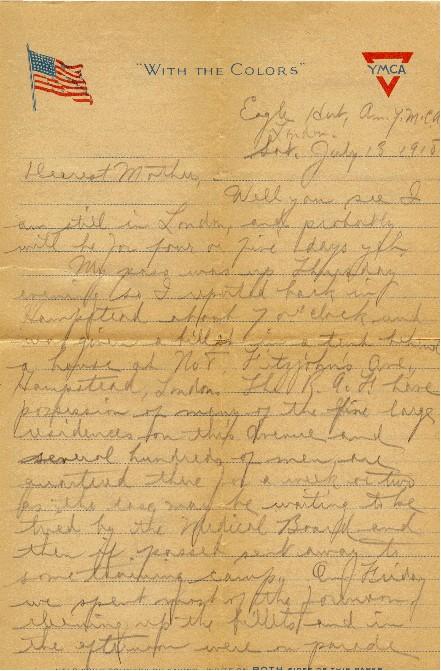 "WITH THE COLORS"
YMCA
Eagle Hut, Am. Y.M.C.A
London.
Sat. July 13 1918
Dearest Mother,
Well you see I
am still in London, and probably
will be for four or five days yet.
My pass was up Thursday
evening so I reported back in
Hampstead about 7 o'clock and
was given a billet in a tent behind
a house at No 7. Fitzjohn's Ave,
Hampstead, London. The R.A.F. have
possession of many of the fine large
residences on this Avenue and
several hundreds of men are
quartered there for a week or two
as the case may be waiting to be
tried by the Medical Board and
then if passed sent away to
some training camp. On Friday
we spent most of the forenoon
cleaning up the billets and in
the afternoon were on parade
BOTH SIDES OF THIS PAPER